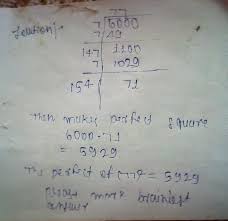 Solution:
77
7 | 6000
7 | 49
147 | 1100
7 | 1029
154 | 71
Then making perfect Square
6000-71
= 5929
The perfect of = 5929
please mark brainlest
answer